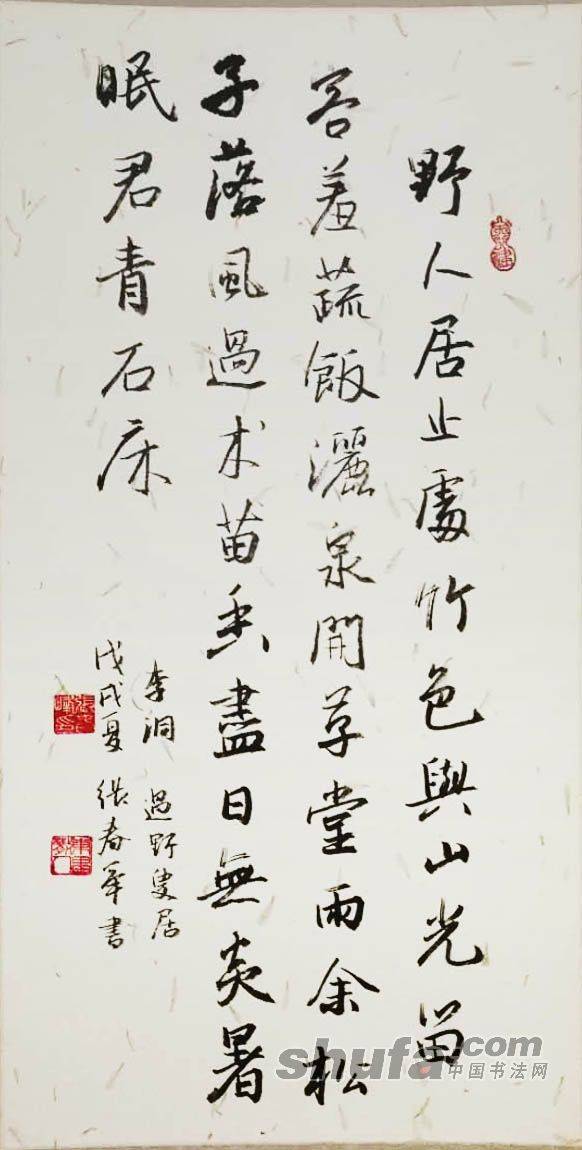 野人居止處竹色與山光留
客羞蔬飯灑泉開草堂雨余松
子落風過术苗香盡日無炎暑
眠君青石床
李洞 過野叟居
戊戌夏 張春華書
shufa.com
中国书法网